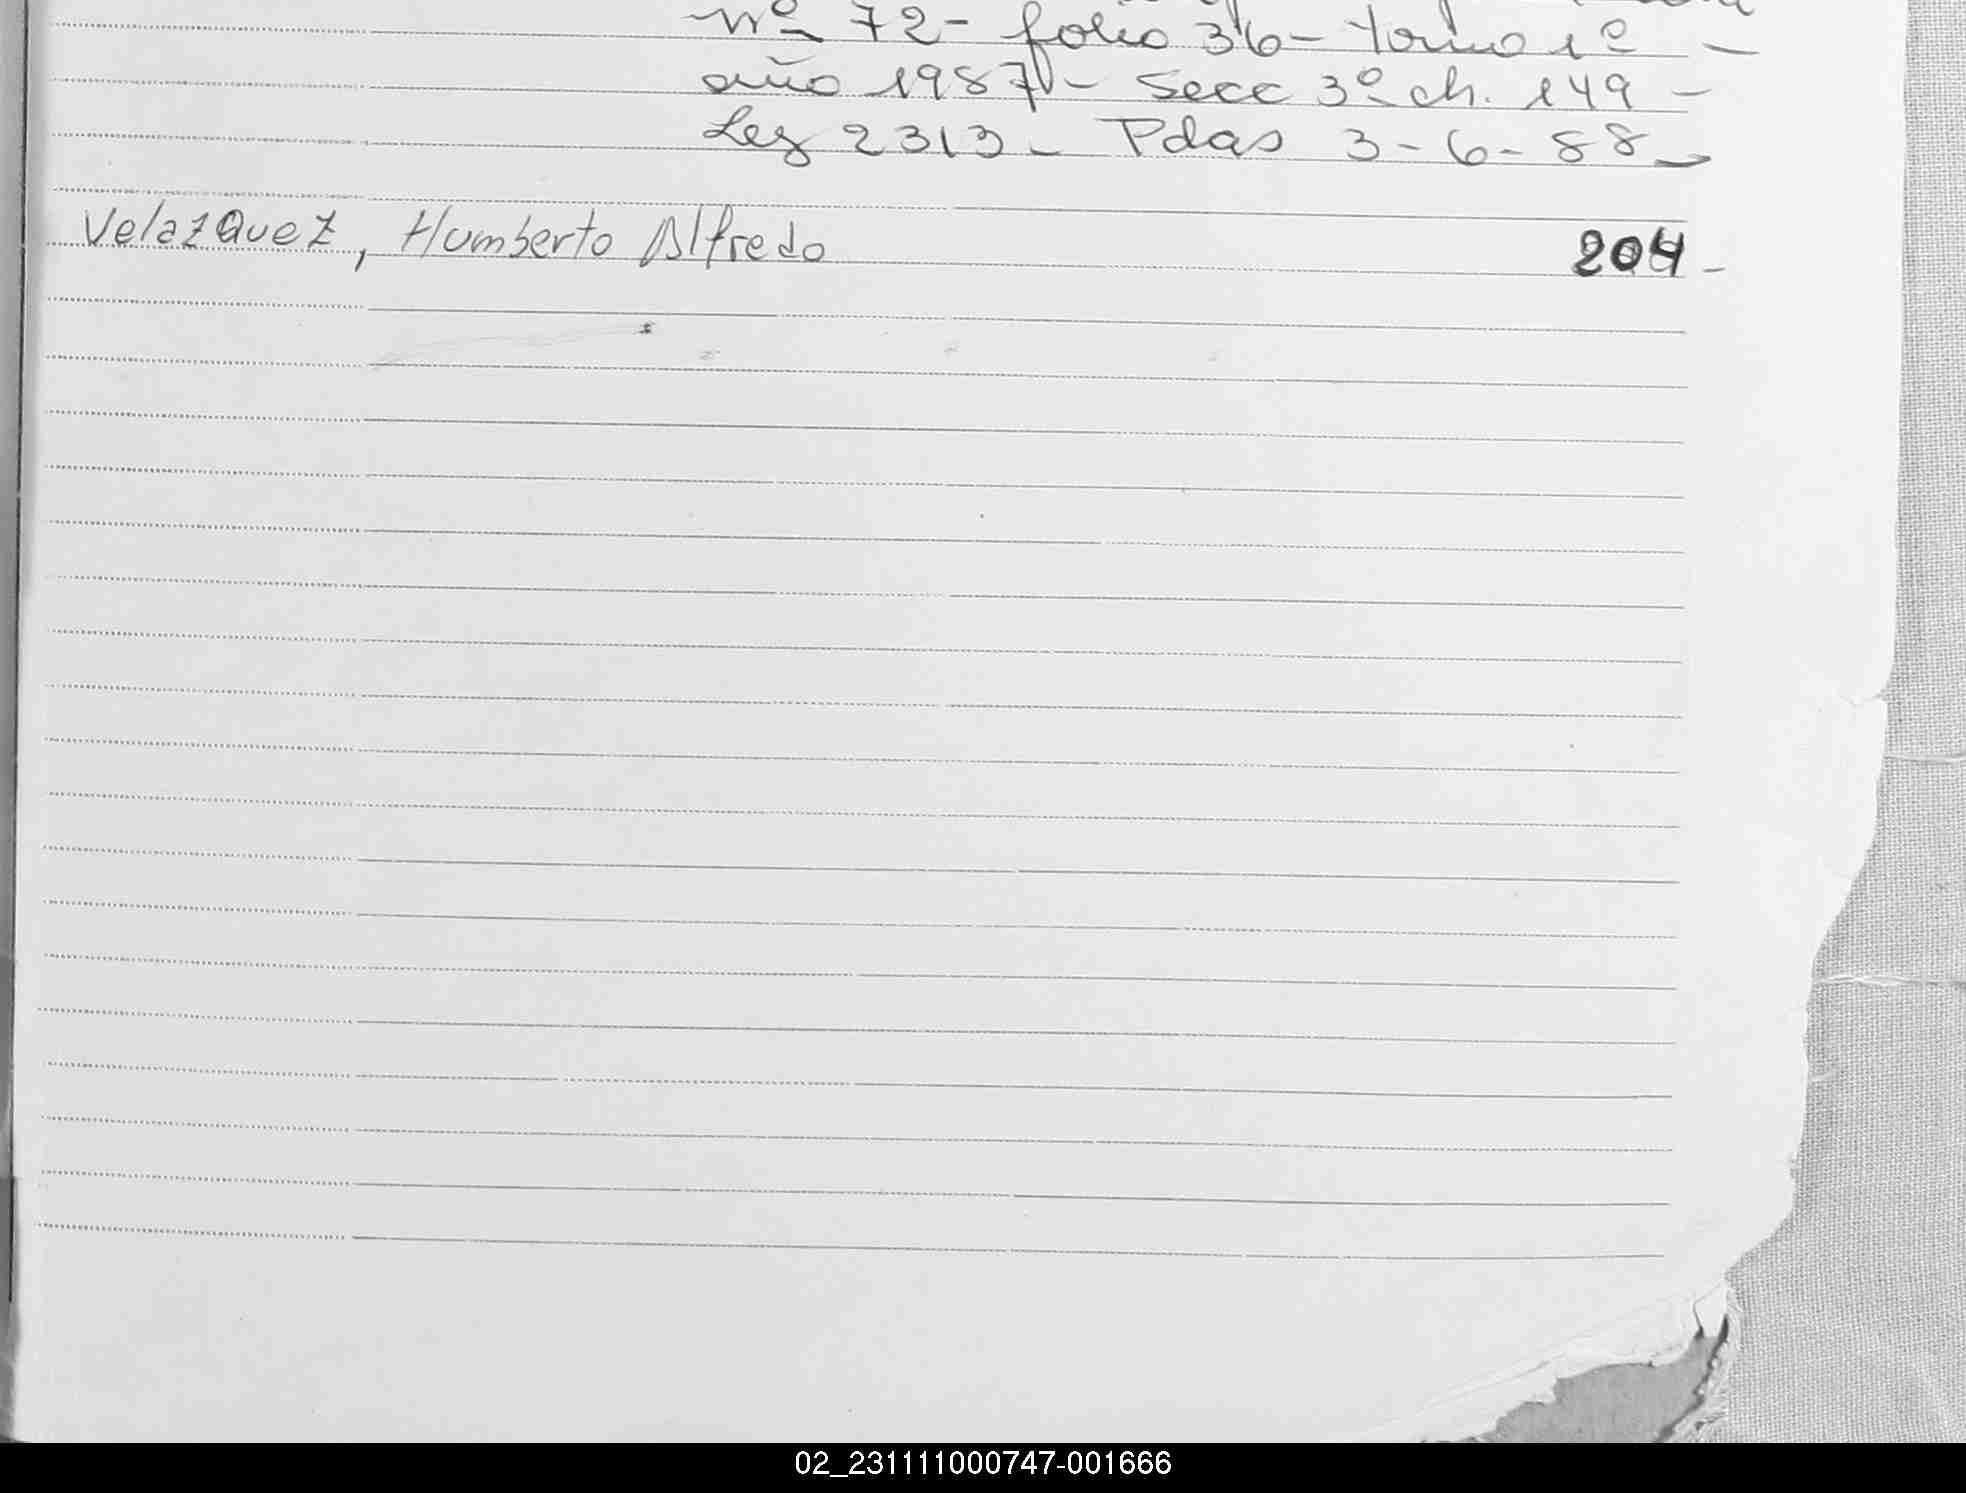 Nº 72 - folio 36 - tomo 1º -
año 1987 - Secc 3º ch. 149 -
Ley 2313 - Pdas 3-6-88-
Velazquez, Humberto Alfredo 204 -
02_231111000747-001666